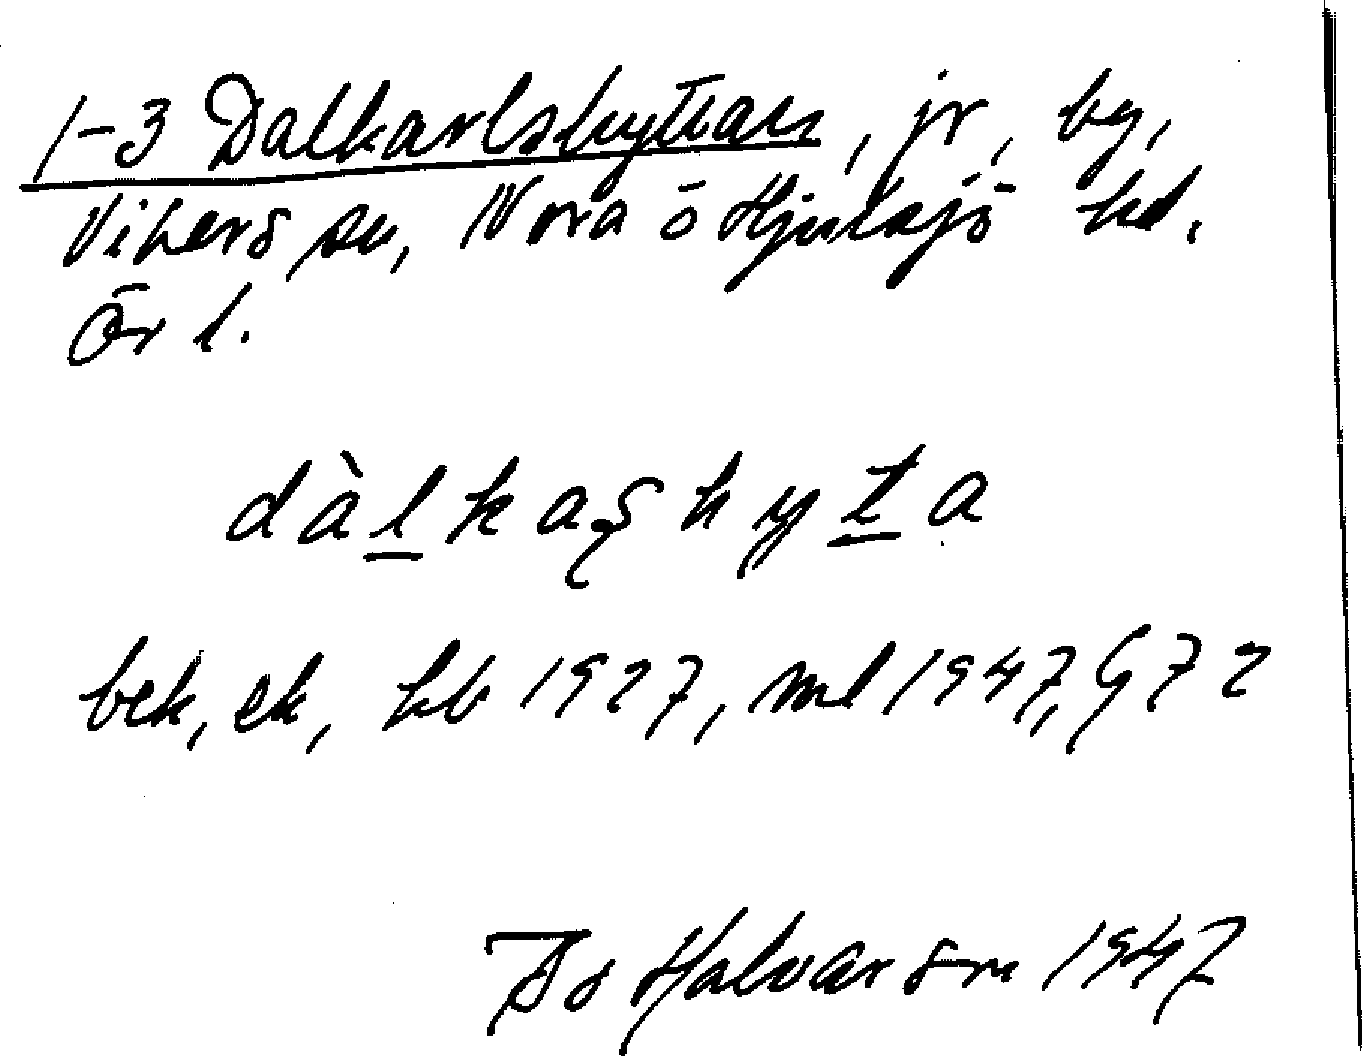 1-3 Dalkarlshyttan, jr, by,
Vikers sn, Nora o Hjulsjö hd.
Ör l.
dàl̲kaʂhyt̲a
bek, ek, hb 1927, ml 1947, G72
Bo Halvarson 1947